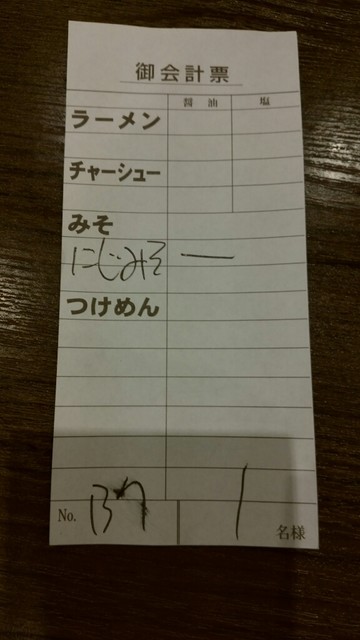 御会計票
醤油 塩
ラーメン
チャーシュー
みそ
にじみそ 一
つけめん
No. 137 1 名様